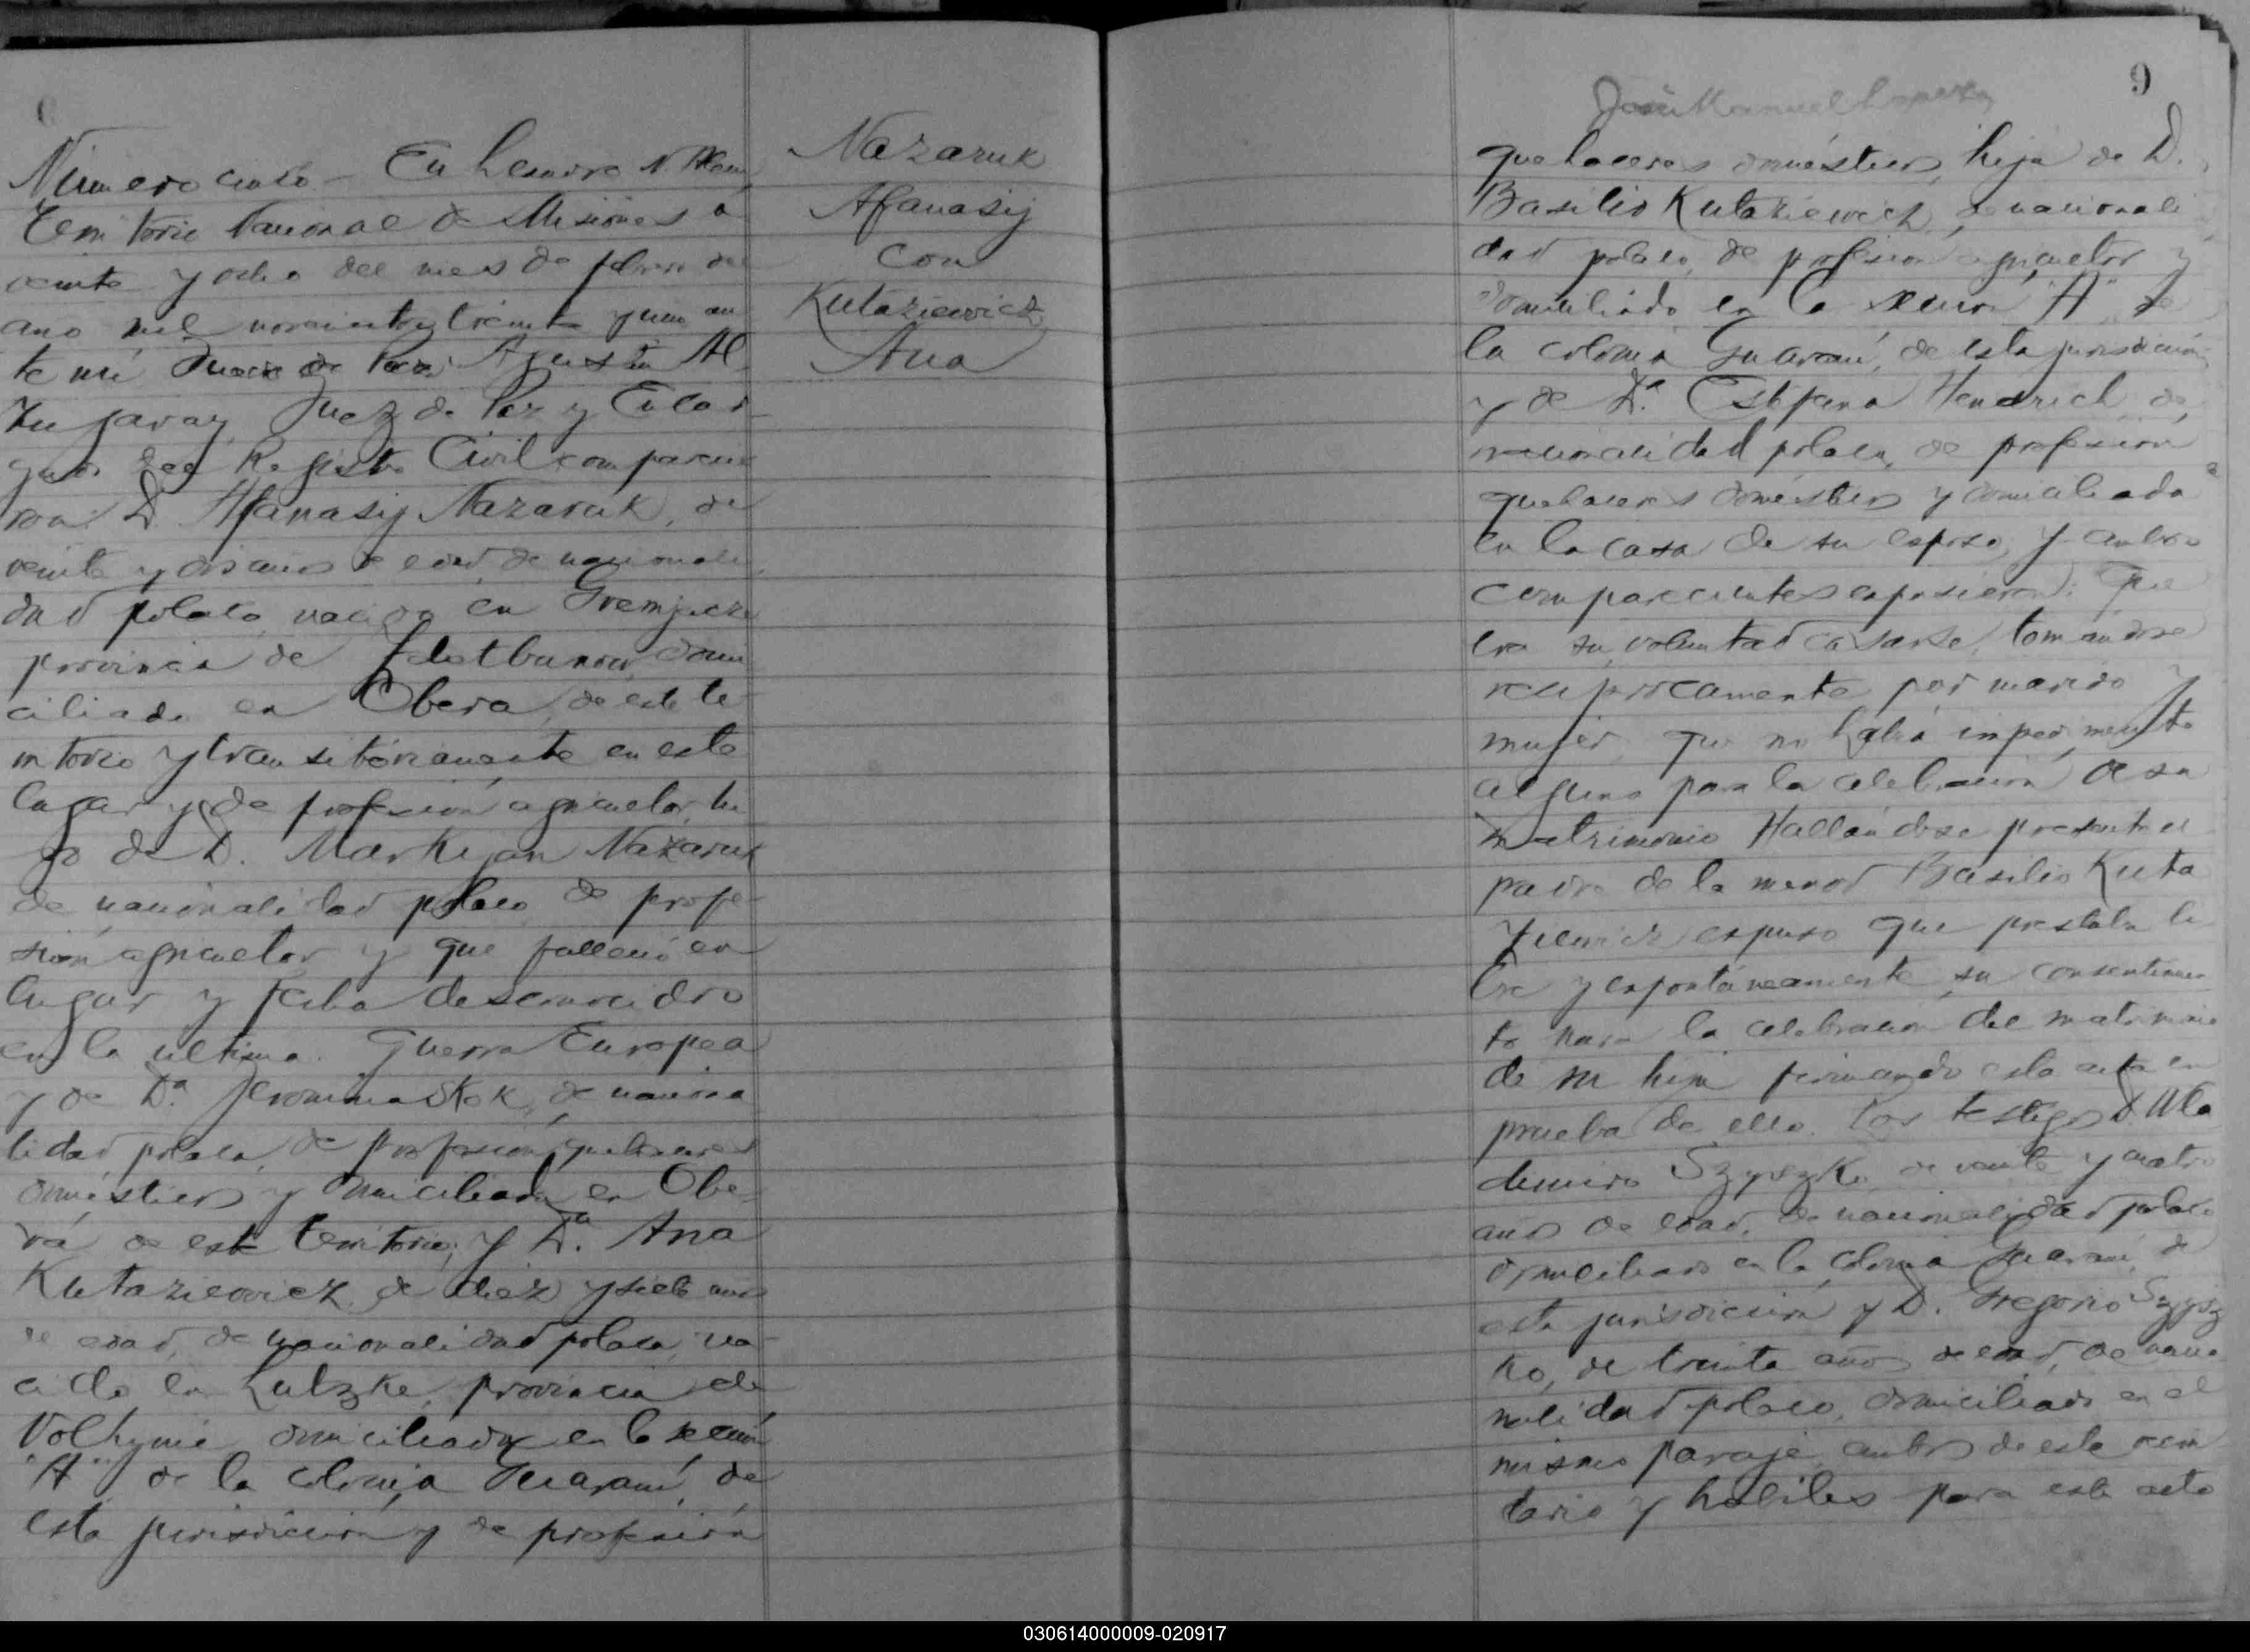 Número cinco - En Leandro N. Alem,
Territorio Nacional de Misiones a
veinte y ocho del mes de febrero del
año mil novecientos treinta y uno an
te mi Juez de Paz Agustin Al
Juez de Paz y Encar
gado del Registro Civil comparecie
ron D. Afanasij Nazaruk, de
veinte y dos años de edad, de nacionali
dad polaco, nacido en
provincia de domi
ciliado en Obera, de este te
rritorio y transitóriamente en este
lugar y de profesión agricultor, hi
jo de D. Markijan Nazaruk
de nacionalidad polaco, de profe-
sión agricultor y que falleció en
lugar y fecha desconocidos
en la última Guerra Europea
y de Da. Jeromina Skok, de naciona
lidad polaca, de profesión quehaceres
domésticos y domiciliada en Obe-
rá de este territorio; y Da. Ana
Kutaziewicz, de diez y siete años
de edad, de nacionalidad polaca, na-
cida en Lutzke, provincia de
Volhynie domiciliada en la sección
"A" de la colonia Guaraní, de
esta jurisdicción y de profesión
Nazaruk
Afanasij
con
Kutaziewicz
Ana
9
José Manuel
quehaceres domésticos, hija de D.
Basilio Kutaziewich, de nacionali
dad polaco, de profesión agricultor y
domiciliado en la sección "A" de
la colonia Guaraní, de esta jurisdicción
y de Da. Estefana Hendrich, de
nacionalidad polaca, de profesión
quehaceres domésticos y domiciliada
en la casa de su esposo, y ambos
comparecientes expusieron: Que
era su voluntad casarse, tomándose
reciprocamente por marido y
mujer, que no había impedimento
alguno para la celebración de su
matrimonio Hallándose presente el
padre de la menor Basilio Kuta
ziewicz expuso que prestaba li
bre y espontáneamente su consentimien
to para la celebración del matrimonio
de su hija firmando esta acta en
prueba de ello. Los testigos D. Wla
demiro Szyszko, de veinte y cuatro
años de edad, de nacionalidad polaco
domiciliado en la colonia Guaraní, de
esta jurisdicción y D. Gregorio Szysz
ko, de treinta años de edad, de nacio
nalidad polaco, domiciliado en el
mismo paraje, ambos de este vecin
dario y habiles para este acto
030614000009-020917